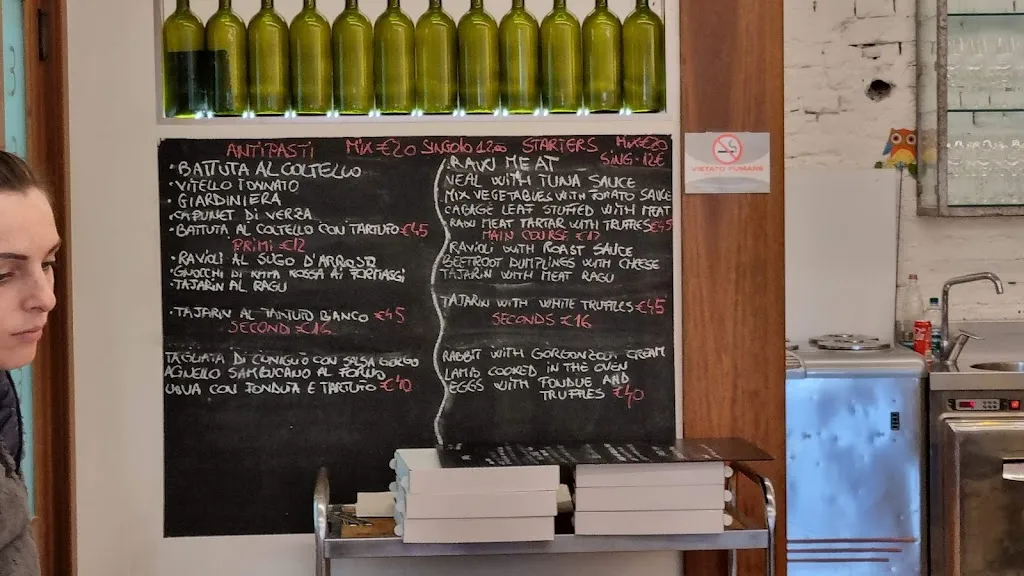 ANTIPASTI MIX €20 SINGOLO 12.00
· BATTUTA AL COLTELLO
· VITELLO TONNATO
· GIARDINIERA
· CAPUNET DI VERZA
· BATTUTA AL COLTELLO CON TARTUFO €45
PRIMI €12
· RAVIOLI AL SUGO D'ARROSTO
· GNOCCHI DI RAPA ROSSA AI FORMAGGI
· TAJARIN AL RAGU
· TAJARIN AL TARTUFO BIANCO €45
SECONDI €16
TAGLIATA DI CONIGLIO CON SALSA GORGO
AGNELLO SAMBUCANO AL FORNO
UOVA CON FONDUTA E TARTUFO €40
STARTERS MIX €20
SING. 12€
RAW MEAT
VEAL WITH TUNA SAUCE
MIX VEGETABLES WITH TOMATO SAUCE
CABAGE LEAF STUFFED WITH MEAT
RAW MEAT TARTAR WITH TRUFFLES €45
MAIN COURSE €12
RAVIOLI WITH ROAST SAUCE
BEETROOT DUMPLINGS WITH CHEESE
TAJARIN WITH MEAT RAGU
TAJARIN WITH WHITE TRUFFLES €45
SECONDS €16
RABBIT WITH GORGONZOLA CREAM
LAMB COOKED IN THE OVEN
EGGS WITH FONDUE AND
TRUFFLES €40
VIETATO FUMARE